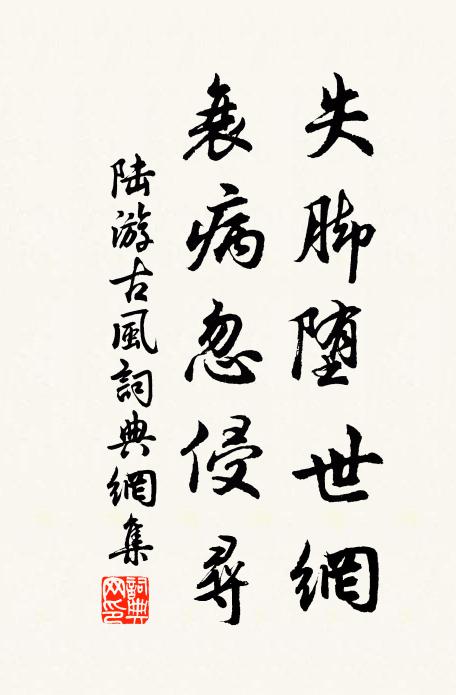 失脚墮世網
衰病忽侵尋
陆游古風詞典網集
詞典網印